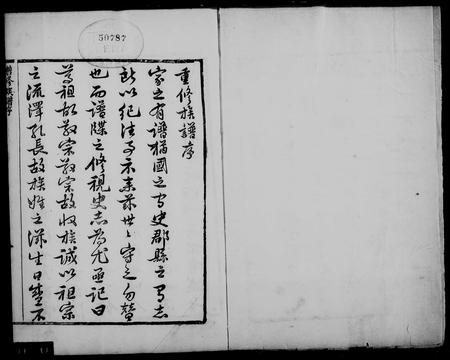 50787
重修族譜序
家之有譜猶國之有史郡縣之有志
所以紀法示來兹世世守之勿替
也而譜牒之修視史志為尤亟記曰
尊祖故敬宗敬宗故收族誠以祖宗
之流澤孔長故族姓之滋生日蕃不